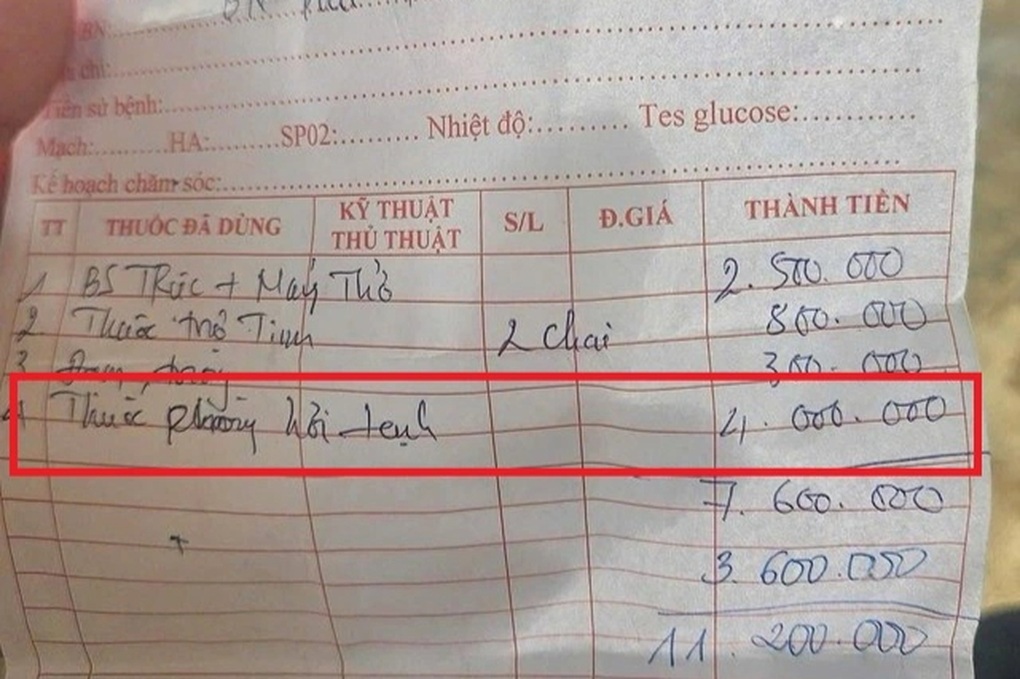 BN:
chỉ:
Tiền sử bệnh:
Mạch: HA: SP02: Nhiệt độ: Tes glucose:
Kế hoạch chăm sóc:
TT THUỐC ĐÃ DÙNG KỸ THUẬT THỦ THUẬT S/L Đ.GIÁ THÀNH TIỀN
1 BS Trực + Máy Thở 2.500.000
2 Thuốc trợ Tim 2 chai 800.000
3 300.000
4 Thuốc phòng hôi tẹnh 4.000.000
7.600.000
3.600.000
11.200.000